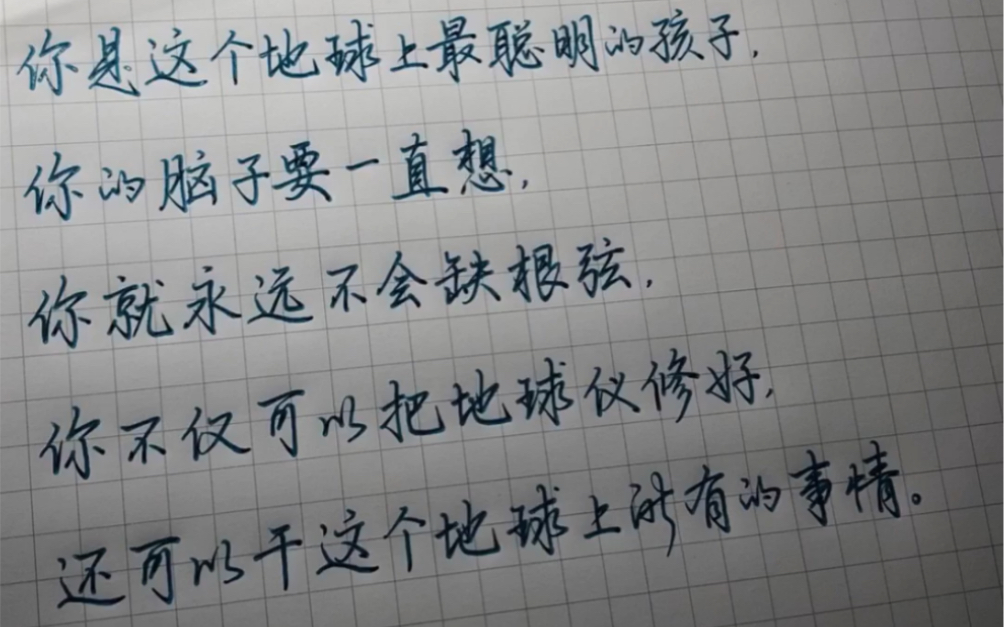 你是这个地球上最聪明的孩子,
你的脑子要一直想,
你就永远不会缺根弦,
你不仅可以把地球仪修好,
还可以干这个地球上所有的事情。